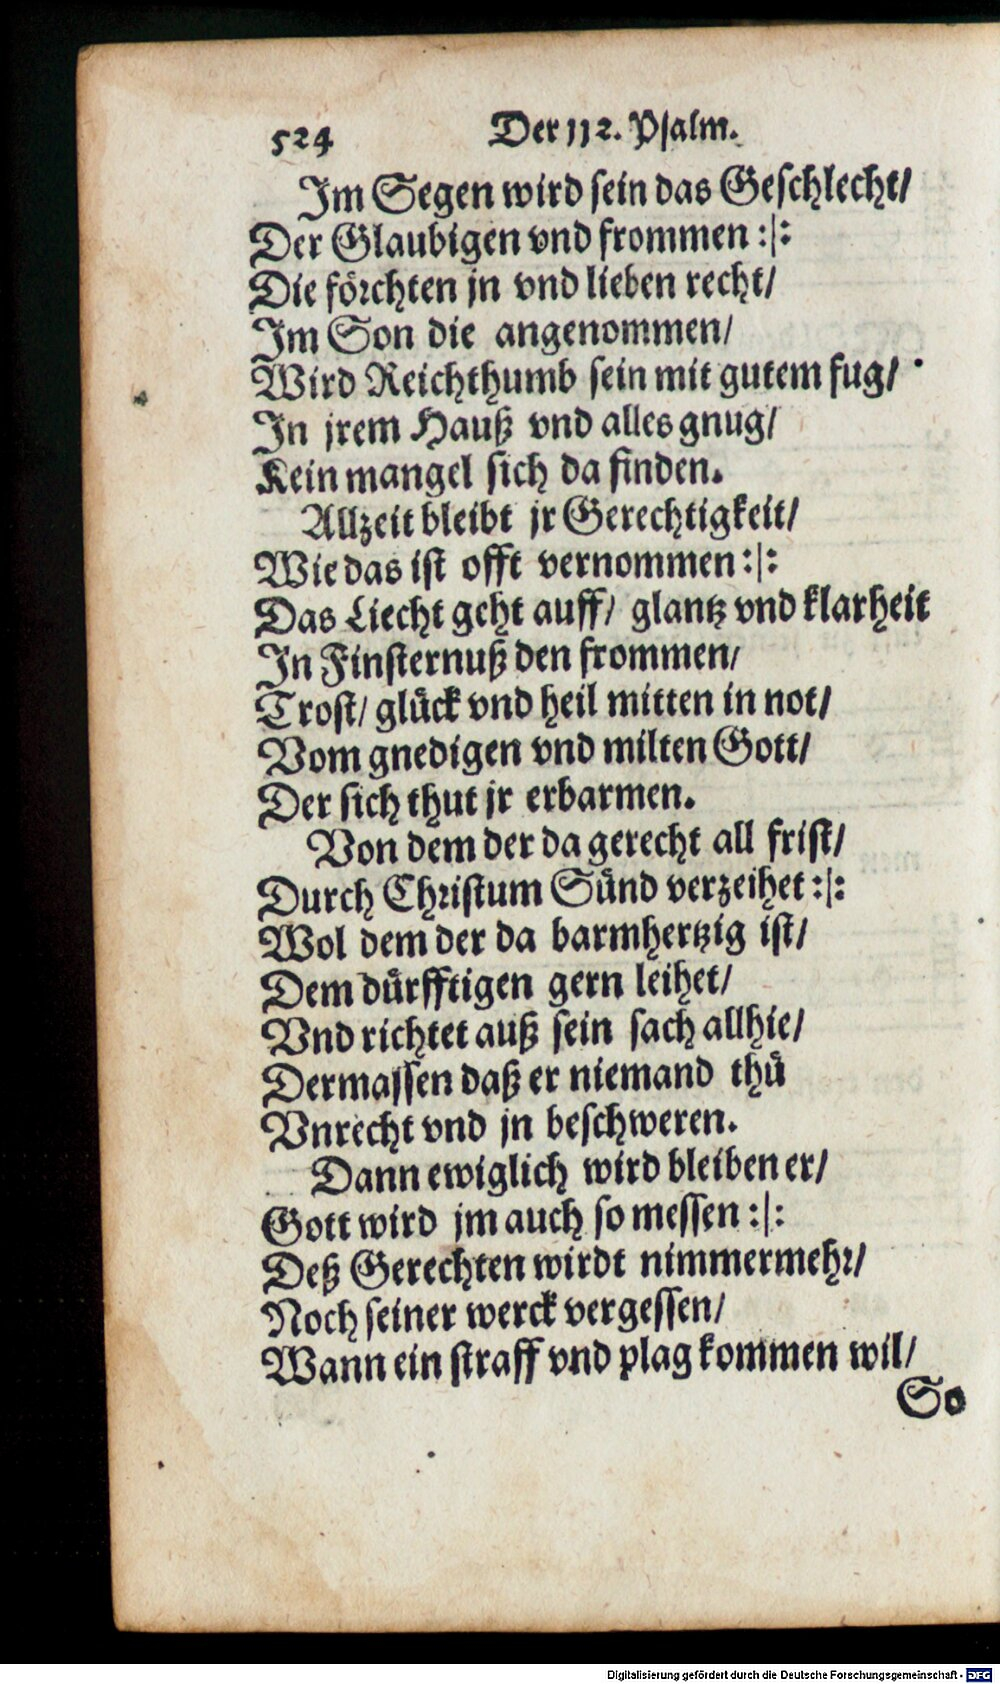 524 Der 112. Psalm.
Im Segen wird sein das Geschlecht/
Der Glaubigen vnd frommen :|:
Die förchten jn vnd lieben recht/
Im Son die angenommen/
Wird Reichthumb sein mit gutem fug/
In jrem Hauß vnd alles gnug/
Kein mangel sich da finden.
Allzeit bleibt jr Gerechtigkeit/
Wie das ist offt vernommen :|:
Das Liecht geht auff/ glantz vnd klarheit
In Finsternuß den frommen/
Trost/ glück vnd heil mitten in not/
Vom gnedigen vnd milten Gott/
Der sich thut jr erbarmen.
Von dem der da gerecht all frist/
Durch Christum Sünd verzeihet :|:
Wol dem der da barmhertzig ist/
Dem dürfftigen gern leihet/
Vnd richtet auß sein sach allhie/
Dermassen daß er niemand thü
Vnrecht vnd jn beschweren.
Dann ewiglich wird bleiben er/
Gott wird jm auch so messen :|:
Deß Gerechten wirdt nimmermehr/
Noch seiner werck vergessen/
Wann ein straff vnd plag kommen wil/
So
Digitalisierung gefördert durch die Deutsche Forschungsgemeinschaft - DFG